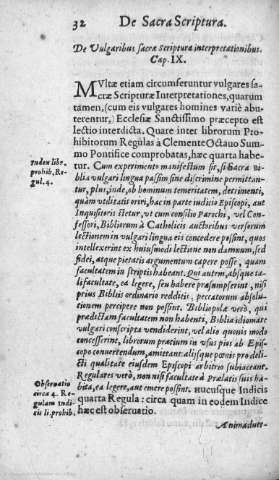 32 De Sacra Scriptura.
De Vulgaribus sacræ Scripturæ interpretationibus.
Cap. IX.
MVltæ etiam circumferuntur vulgares sa-
cræ Scripturæ Interpretationes, quarum
tamen, (cum eis vulgares homines varie abu-
terentur,) Ecclesiæ Sanctissimo præcepto est
lectio interdicta. Quare inter librorum Pro-
hibitorum Regulas à Clemente Octauo Sum-
mo Pontifice comprobatas, hæc quarta habe-
Index libr.
prohib. Re-
gul. 4.
tur. Cum experimento manifestum sit, si sacra bi-
blia vulgari lingua passim sine discrimine permittan-
tur, plus, inde, ab hominum temeritatem, detrimenti,
quàm vtilitatis oriri, hac in parte iudicio Episcopi, aut
Inquisitoris stetur, vt cum consilio Parochi, vel Con-
fessori, Bibliorum à Catholicis auctoribus versorum
lectionem in vulgari lingua eis concedere possint, quos
intellexerint ex huiusmodi lectione non damnum, sed
fidei, atque pietatis augmentum capere posse, quam
facultatem in scriptis habeant. Qui autem, absque ta-
li facultate, ea legere, seu habere præsumpserint, nisi
prius Bibliis ordinario redditis, peccatorum absolu-
tionem percipere non possint. Bibliopolæ verò, qui
prædictam facultatem non habenti, Biblia idiomate
vulgari conscripta vendiderint, vel alio quouis modo
concesserint, librorum pretium in vsus pios ab Episco-
po conuertendum, amittant: aliisque pœnis pro deli-
cti qualitate eiusdem Episcopi arbitrio subiaceant.
Regulares verò, non nisi facultate à Prælatis suis ha-
bita, ea legere, aut emere possint. hucusque Indicis
Obseruatio
circa 4. Re-
gulam Indi-
cis li. prohib.
quarta Regula: circa quam in eodem Indice
hæc est obseruatio.
Animaduer-